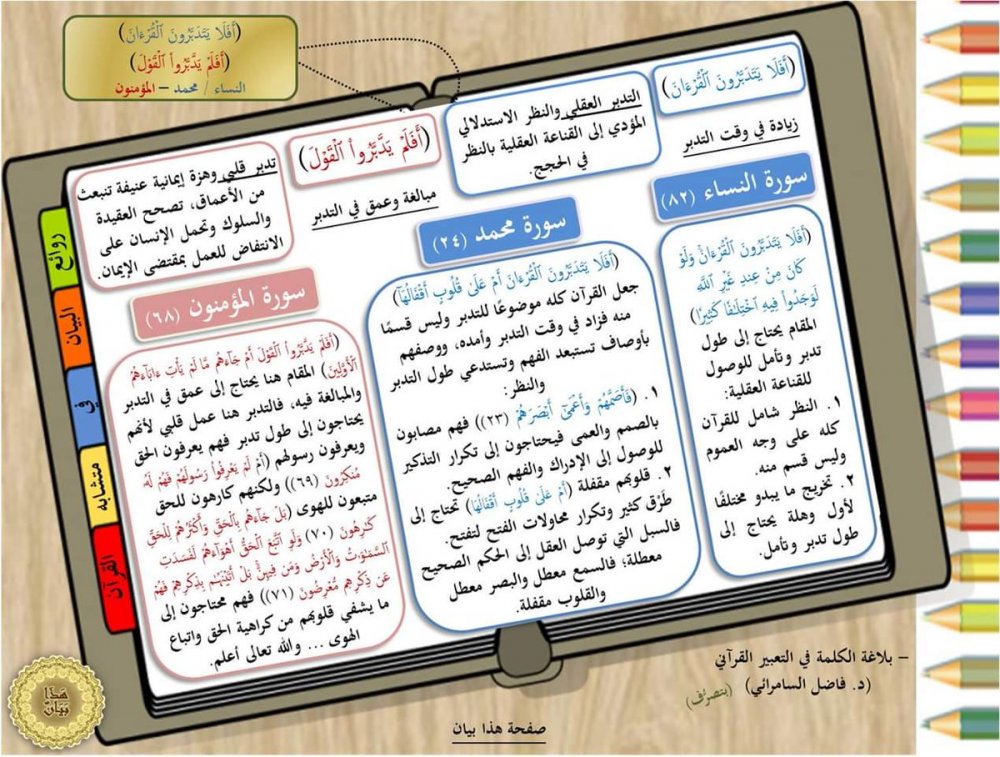 ﴿أَفَلَا يَتَدَبَّرُونَ ٱلْقُرْءَانَ﴾
﴿أَفَلَمْ يَدَّبَّرُوا۟ ٱلْقَوْلَ﴾
النساء / محمد – المؤمنون
﴿أَفَلَا يَتَدَبَّرُونَ ٱلْقُرْءَانَ﴾
زيادة في وقت التدبر
التدبر العقلي والنظر الاستدلالي
المؤدي إلى القناعة العقلية بالنظر
في الحجج.
﴿أَفَلَمْ يَدَّبَّرُوا۟ ٱلْقَوْلَ﴾
مبالغة وعمق في التدبر
تدبر قلبي وهزة إيمانية عنيفة تنبعث
من الأعماق، تصحح العقيدة
والسلوك وتحمل الإنسان على
الانتفاض للعمل بمقتضى الإيمان.
سورة النساء (٨٢)
﴿أَفَلَا يَتَدَبَّرُونَ ٱلْقُرْءَانَ وَلَوْ
كَانَ مِنْ عِندِ غَيْرِ ٱللَّهِ
لَوَجَدُوا۟ فِيهِ ٱخْتِلَـٰفًا كَثِيرًا﴾
المقام يحتاج إلى طول
تدبر وتأمل للوصول
للقناعة العقلية:
١. النظر شامل للقرآن
كله على وجه العموم
وليس قسم منه.
٢. تخريج ما يبدو مختلفًا
لأول وهلة يحتاج إلى
طول تدبر وتأمل.
سورة محمد (٢٤)
﴿أَفَلَا يَتَدَبَّرُونَ ٱلْقُرْءَانَ أَمْ عَلَىٰ قُلُوبٍ أَقْفَالُهَآ﴾
جعل القرآن كله موضوعًا للتدبر وليس قسمًا
منه فزاد في وقت التدبر وأمده، ووصفهم
بأوصاف تستبعد الفهم وتستدعي طول التدبر
والنظر:
١. ﴿فَأَصَمَّهُمْ وَأَعْمَىٰٓ أَبْصَـٰرَهُمْ (٢٣)﴾ فهم مصابون
بالصمم والعمى فيحتاجون إلى تكرار التذكير
للوصول إلى الإدراك والفهم الصحيح.
٢. قلوبهم مقفلة ﴿أَمْ عَلَىٰ قُلُوبٍ أَقْفَالُهَآ﴾ تحتاج إلى
طَرْق كثير وتكرار محاولات الفتح لتفتح.
فالسبل التي توصل العقل إلى الحكم الصحيح
معطلة؛ فالسمع معطل والبصر معطل
والقلوب مقفلة.
سورة المؤمنون (٦٨)
﴿أَفَلَمْ يَدَّبَّرُوا۟ ٱلْقَوْلَ أَمْ جَآءَهُم مَّا لَمْ يَأْتِ ءَابَآءَهُمُ
ٱلْأَوَّلِينَ﴾ المقام هنا يحتاج إلى عمق في التدبر
والمبالغة فيه، فالتدبر هنا عمل قلبي لأنهم
يحتاجون إلى طول تدبر فهم يعرفون الحق
ويعرفون رسولهم ﴿أَمْ لَمْ يَعْرِفُوا۟ رَسُولَهُمْ فَهُمْ لَهُۥ
مُنكِرُونَ (٦٩)﴾ ولكنهم كارهون للحق
متبعون للهوى ﴿بَلْ جَآءَهُم بِٱلْحَقِّ وَأَكْثَرُهُمْ لِلْحَقِّ
كَـٰرِهُونَ (٧٠) وَلَوِ ٱتَّبَعَ ٱلْحَقُّ أَهْوَآءَهُمْ لَفَسَدَتِ
ٱلسَّمَـٰوَٰتُ وَٱلْأَرْضُ وَمَن فِيهِنَّ بَلْ أَتَيْنَـٰهُم بِذِكْرِهِمْ فَهُمْ
عَن ذِكْرِهِم مُّعْرِضُونَ (٧١)﴾ فهم محتاجون إلى
ما يشفي قلوبهم من كراهية الحق واتباع
الهوى ... والله تعالى أعلم.
روائع
البيان
في
متشابه
القرآن
– بلاغة الكلمة في التعبير القرآني
(د. فاضل السامرائي) (بتصرّف)
صفحة هذا بيان
هَٰذَا
بَيَانٌ